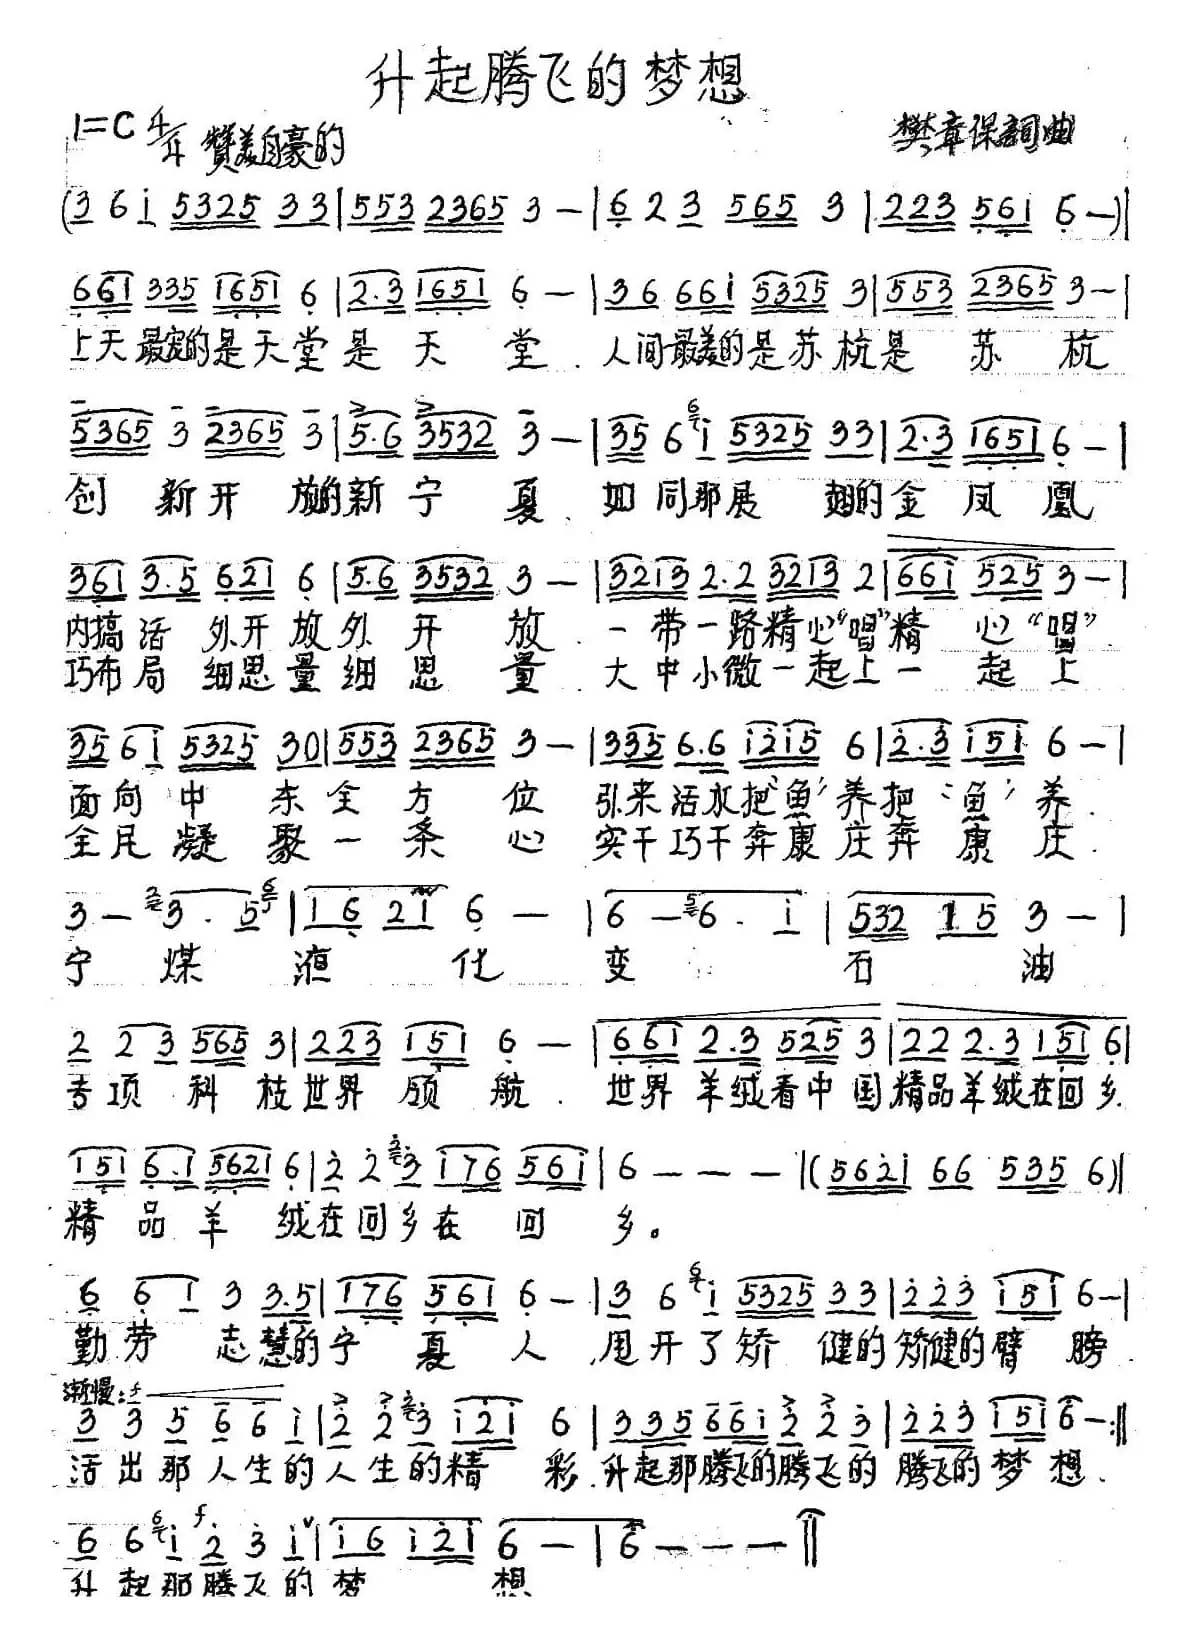 升起腾飞的梦想
1=C 4/4 赞美自豪的
樊章保詞曲
(3 6 i 5325 33|553 2365 3 —|6 2 3 565 3|223 561 6—)|
661 335 1651 6|2.3 1651 6 —|36 661 5325 3|553 2365 3—|
上天最定的是天堂是天堂.人间最美的是苏杭是苏杭
5365 3 2365 3|5.6 3532 3 —|35 6 i 5325 33|2.3 1651 6—|
创新开放的新宁夏.如同那展翅的金凤凰
361 3.5 621 6|5.6 3532 3 —|3213 2.2 3213 2|661 525 3—|
内搞活外开放外开放.一带一路精心“唱”精心“唱”
巧布局细思量细思量.大中小微一起上一起上
35 6 i 5325 30|553 2365 3—|335 6.6 i2i5 6|2.3 i5i 6—|
面向中东全方位引来活水把‘鱼’养把‘鱼’养.
全民凝聚一条心实干巧干奔康庄奔康庄.
3 — 3 . 5|1 6 21 6 —|6 — 6 . i|532 15 3 —|
宁煤液化变石油
2 2 3 565 3|223 151 6 —|661 2.3 525 3|22 2.3 151 6|
专项科技世界领航.世界羊绒看中国精品羊绒在回乡.
151 6.1 5621 6|2 2 3 i76 56i|6 — — —|(562i 66 535 6)|
精品羊绒在回乡在回乡。
6 6 1 3 3.5|176 561 6—|3 6 i 5325 33|223 i5i 6—|
勤劳志慧的宁夏人.甩开了矫健的矫健的臂膀
渐慢:f
3 3 5 6 6 i|2 2 3 i2i 6|335 66i 2 2 3|223 i5i 6—:‖
活出那人生的人生的精彩.升起那腾飞的腾飞的腾飞的梦想.
6 6 i 2 3 i|i 6 i2i 6 —|6 — — —‖
升起那腾飞的梦想